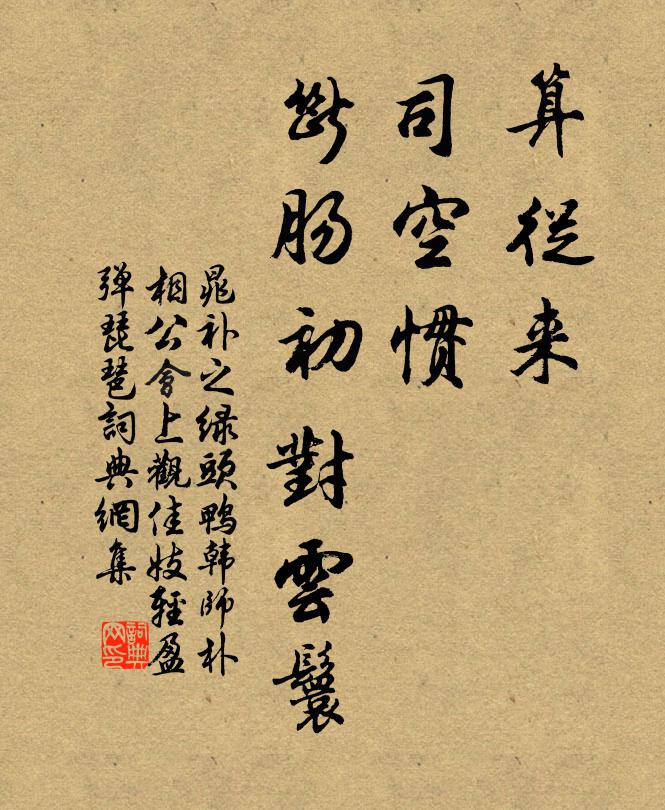 算從来
司空慣
斷腸初對雲鬟
晁补之绿頭鴨韩師朴
相公會上觀佳妓輕盈
弹琵琶詞典網集
詞典網印